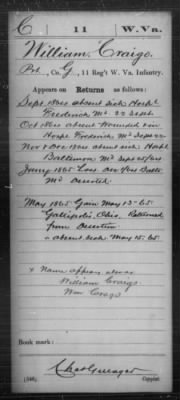 C 11 W. Va.
William Craigo.
Pvt., Co. G, 11 Reg't W. Va. Infantry.
Appears on Returns as follows:
Sept. 1864 absent sick Hosp'l
Frederick Md 22 Sept.
Oct 1864 absent wounded in
Hospl Frederick Md Sept 22
Nov & Dec 1864 absent sick Hospl
Baltimore Md Sept 25/64
Jany 1865 Loss
Md Deserted
May 1865 Gain May 13-65
Gallipolis, Ohio. Returned
from Desertion
absent sick May 15. 65
x Name appears also as
William Craigs
Wm Craigo
Book mark:
(546)
Copyist.